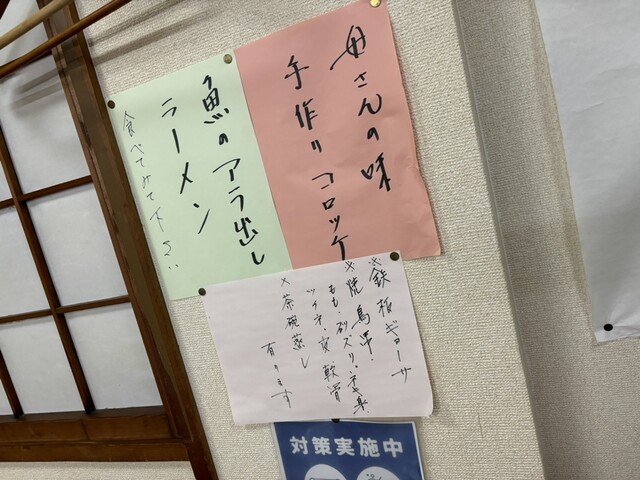 母さんの味
手作りコロッケ
魚のアラ出し
ラーメン
食べてみて下さい
※鉄板ギョーサ
※焼鳥串.
もも.砂ズリ.ネギ身
ツクネ.皮.軟骨
※茶碗蒸し
有ります
対策実施中